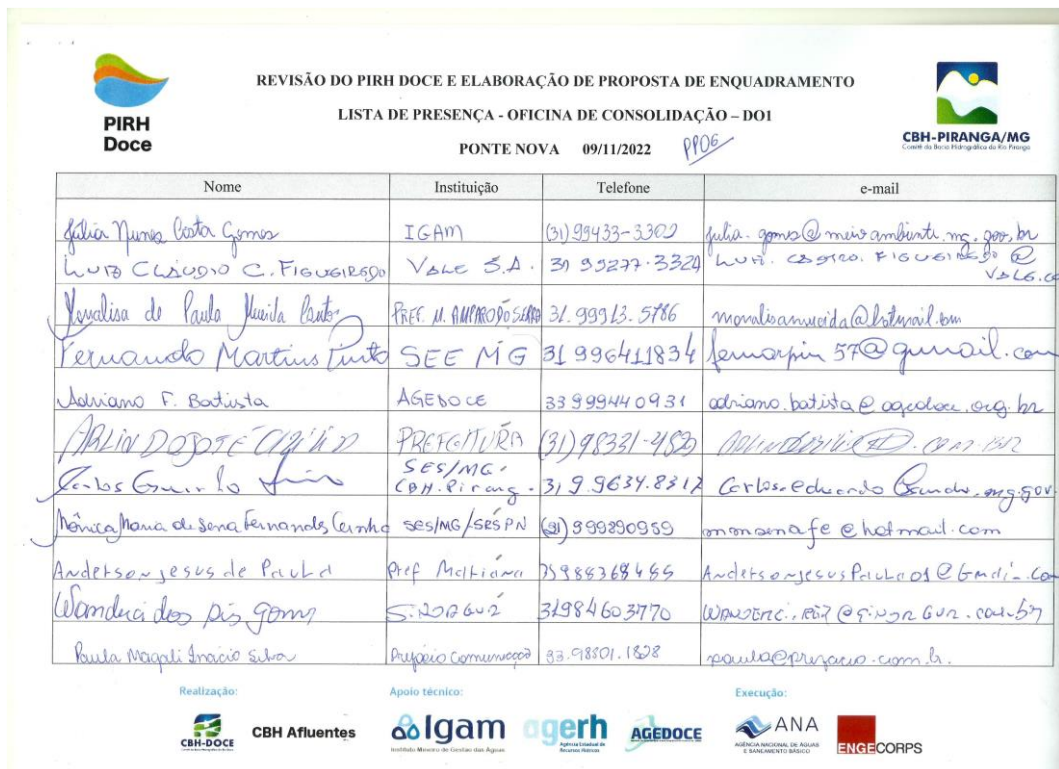 PIRH
Doce
REVISÃO DO PIRH DOCE E ELABORAÇÃO DE PROPOSTA DE ENQUADRAMENTO
LISTA DE PRESENÇA - OFICINA DE CONSOLIDAÇÃO – DO1
PONTE NOVA 09/11/2022 PP06
CBH-PIRANGA/MG
Comitê da Bacia Hidrográfica do Rio Piranga
Nome Instituição Telefone e-mail
Júlia Nunes Costa Gomes IGAM (31) 99433-3302 julia.gomes@meioambiente.mg.gov.br
LUIZ CLÁUDIO C. FIGUEIREDO VALE S.A. 31 99277-3324 FIGUEIREDO @
Monalisa de Paula Almeida Santos PREF. M. AMPARO DO SERRA 31.99913.5786 monalisamueida@hotmail.com
Fernando Martins Pinto SEE MG 31 996411834 fernarpin57@gmail.com
Adriano F. Batista AGEDOCE 33 999440931 adriano.batista@agedoce.org.br
ARLINDO JOSÉ PREFEITURA (31)98331-4820
SES/MG.
Carlos CBH. Pirang. 31 9.9634.8312 Carlos.eduardo mg.gov.
Mônica Maria de Sena Fernandes Cunha SES/MG/SRSPN (31) 999890959 monsenafe@hotmail.com
Anderson jesus de Paula Pref Mariana Andersonjesuspaula01@Gmail.Co
Wanderci dos Reis Gomes 31984603770
Paula Magali Inácio Silva Prefácio Comunicação 33.98801.1828 paula@prefacio.com.br.
Realização: Apoio técnico: Execução:
CBH-DOCE
CBH Afluentes
Igam
Instituto Mineiro de Gestão das Águas
agerh
Agência Estadual de
Recursos Hídricos
AGEDOCE
ANA
AGÊNCIA NACIONAL DE ÁGUAS
E SANEAMENTO BÁSICO
ENGECORPS